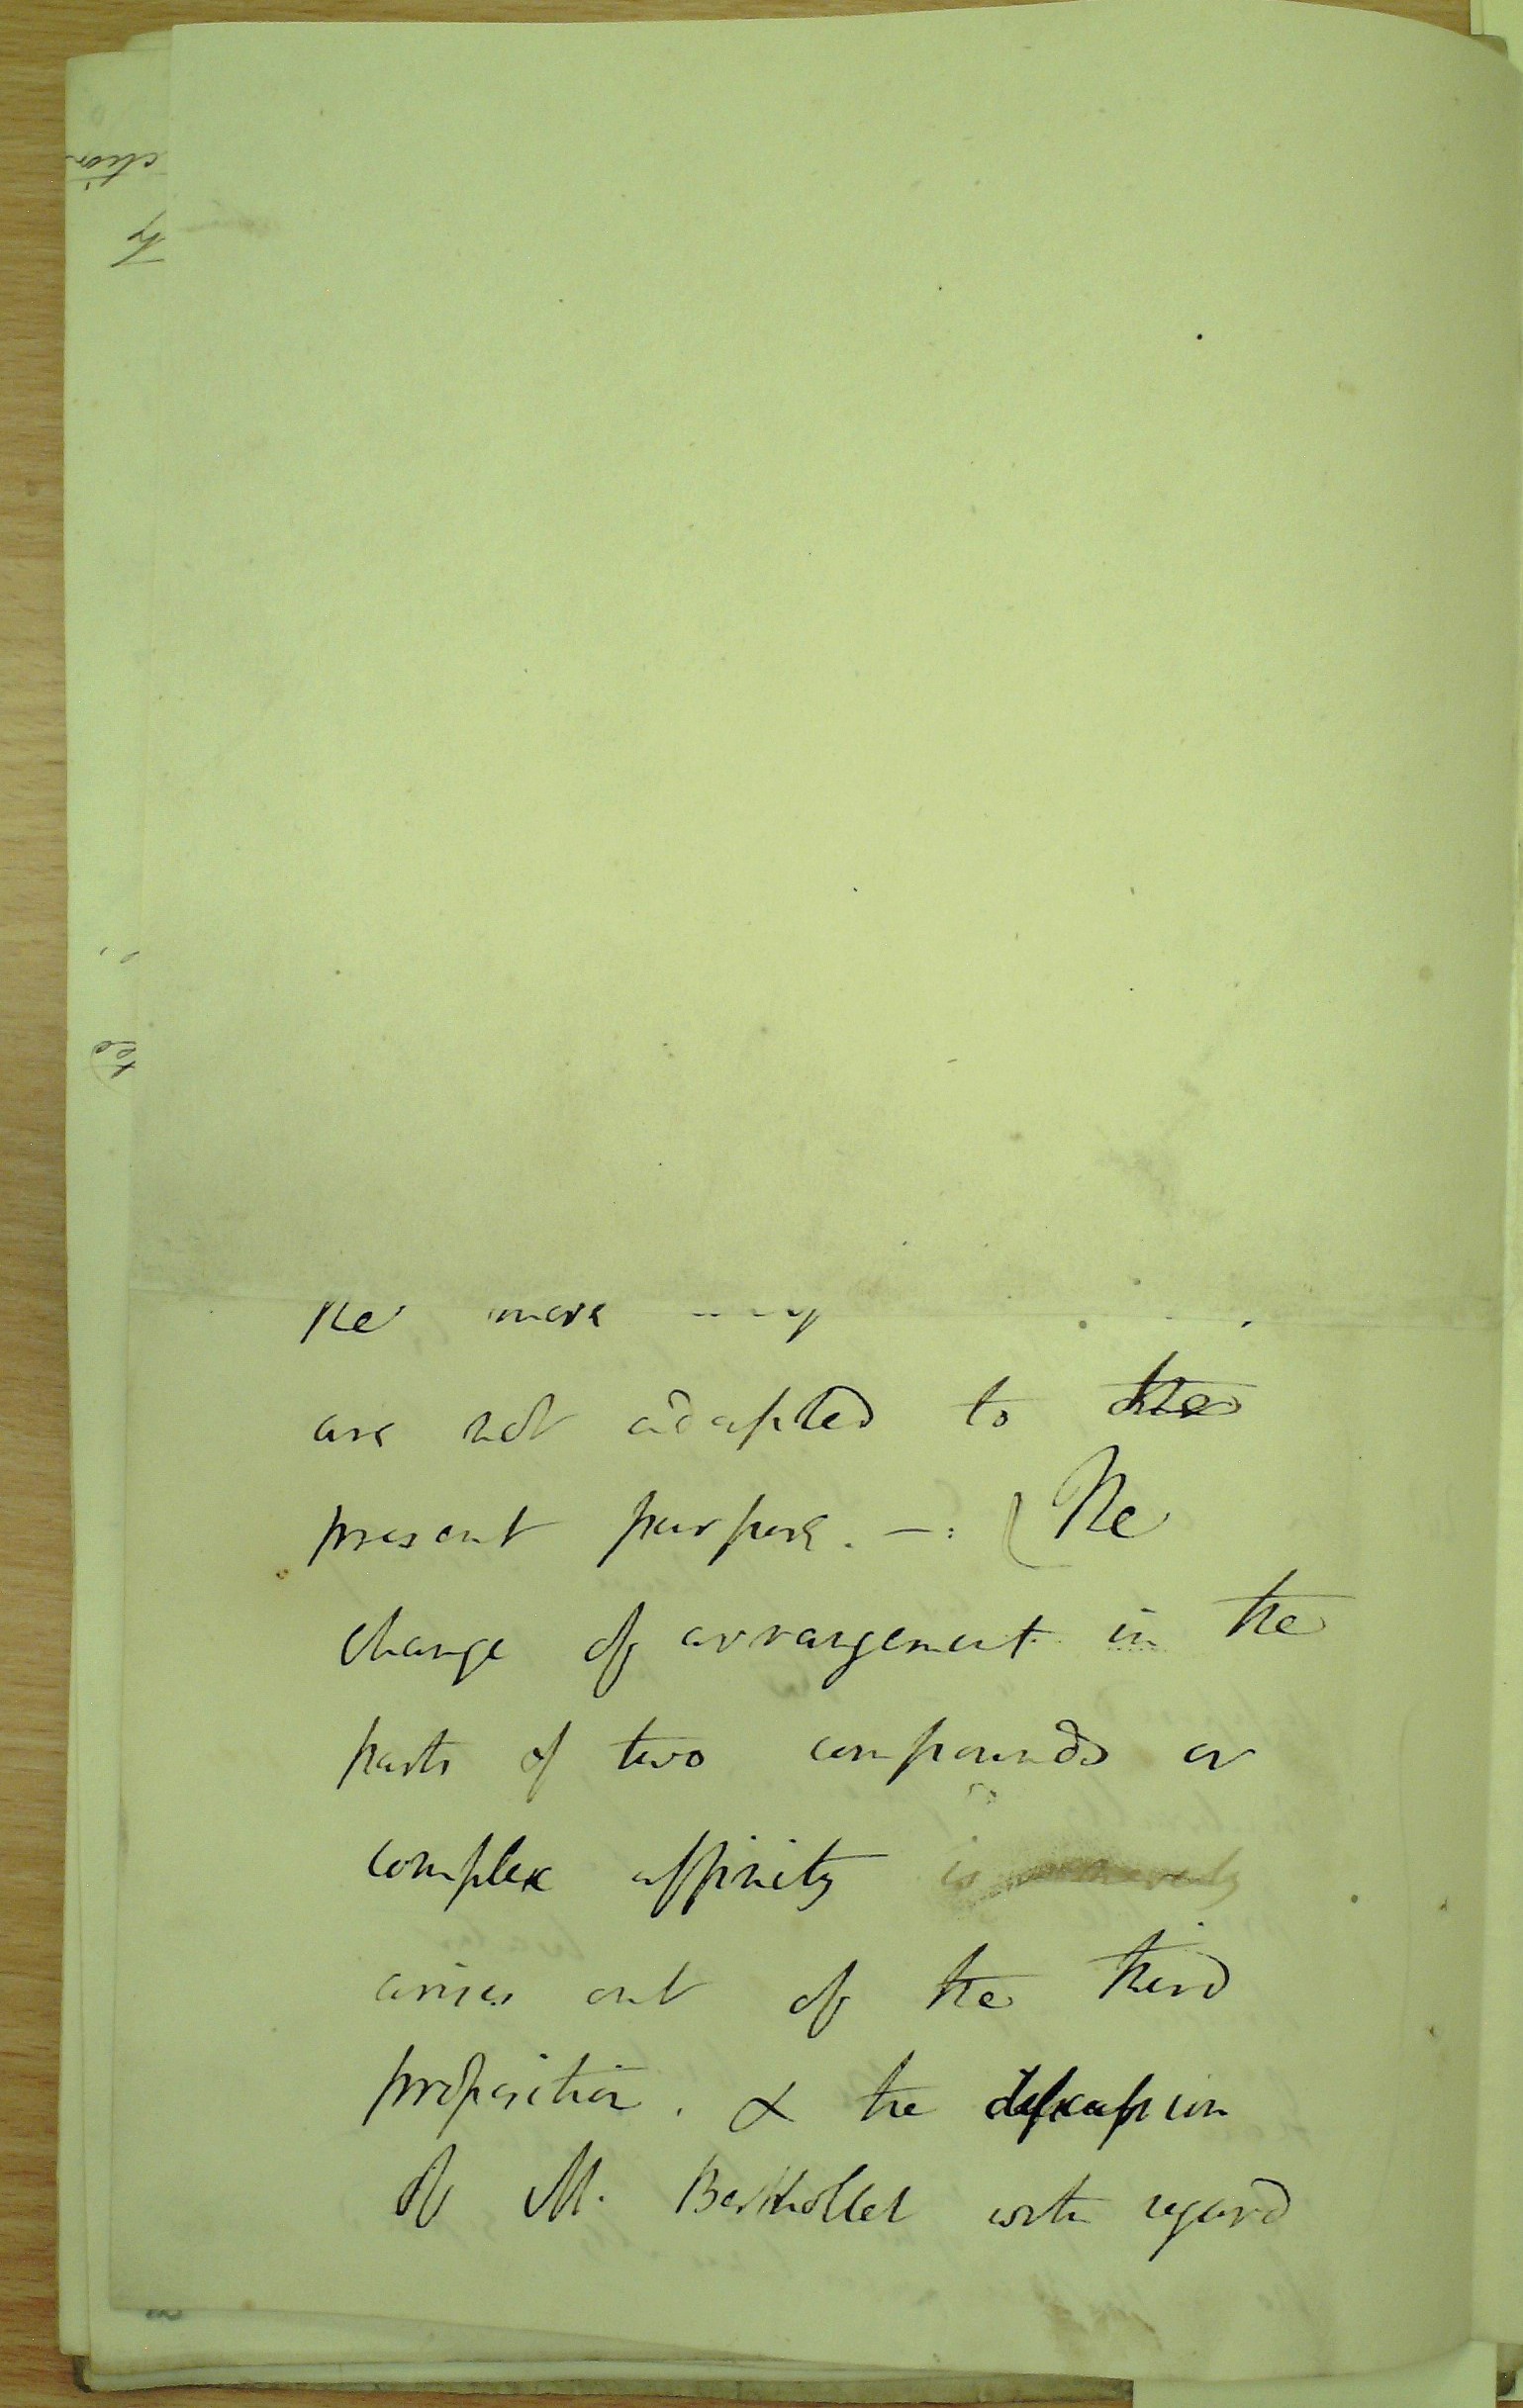 the more
are not adapted to the
present purpose. —: (The
change of arrangement in the
parts of two compounds or
complex affinity is merely
arises out of the third
proposition. & the discussion
of M. Berthollet with regard